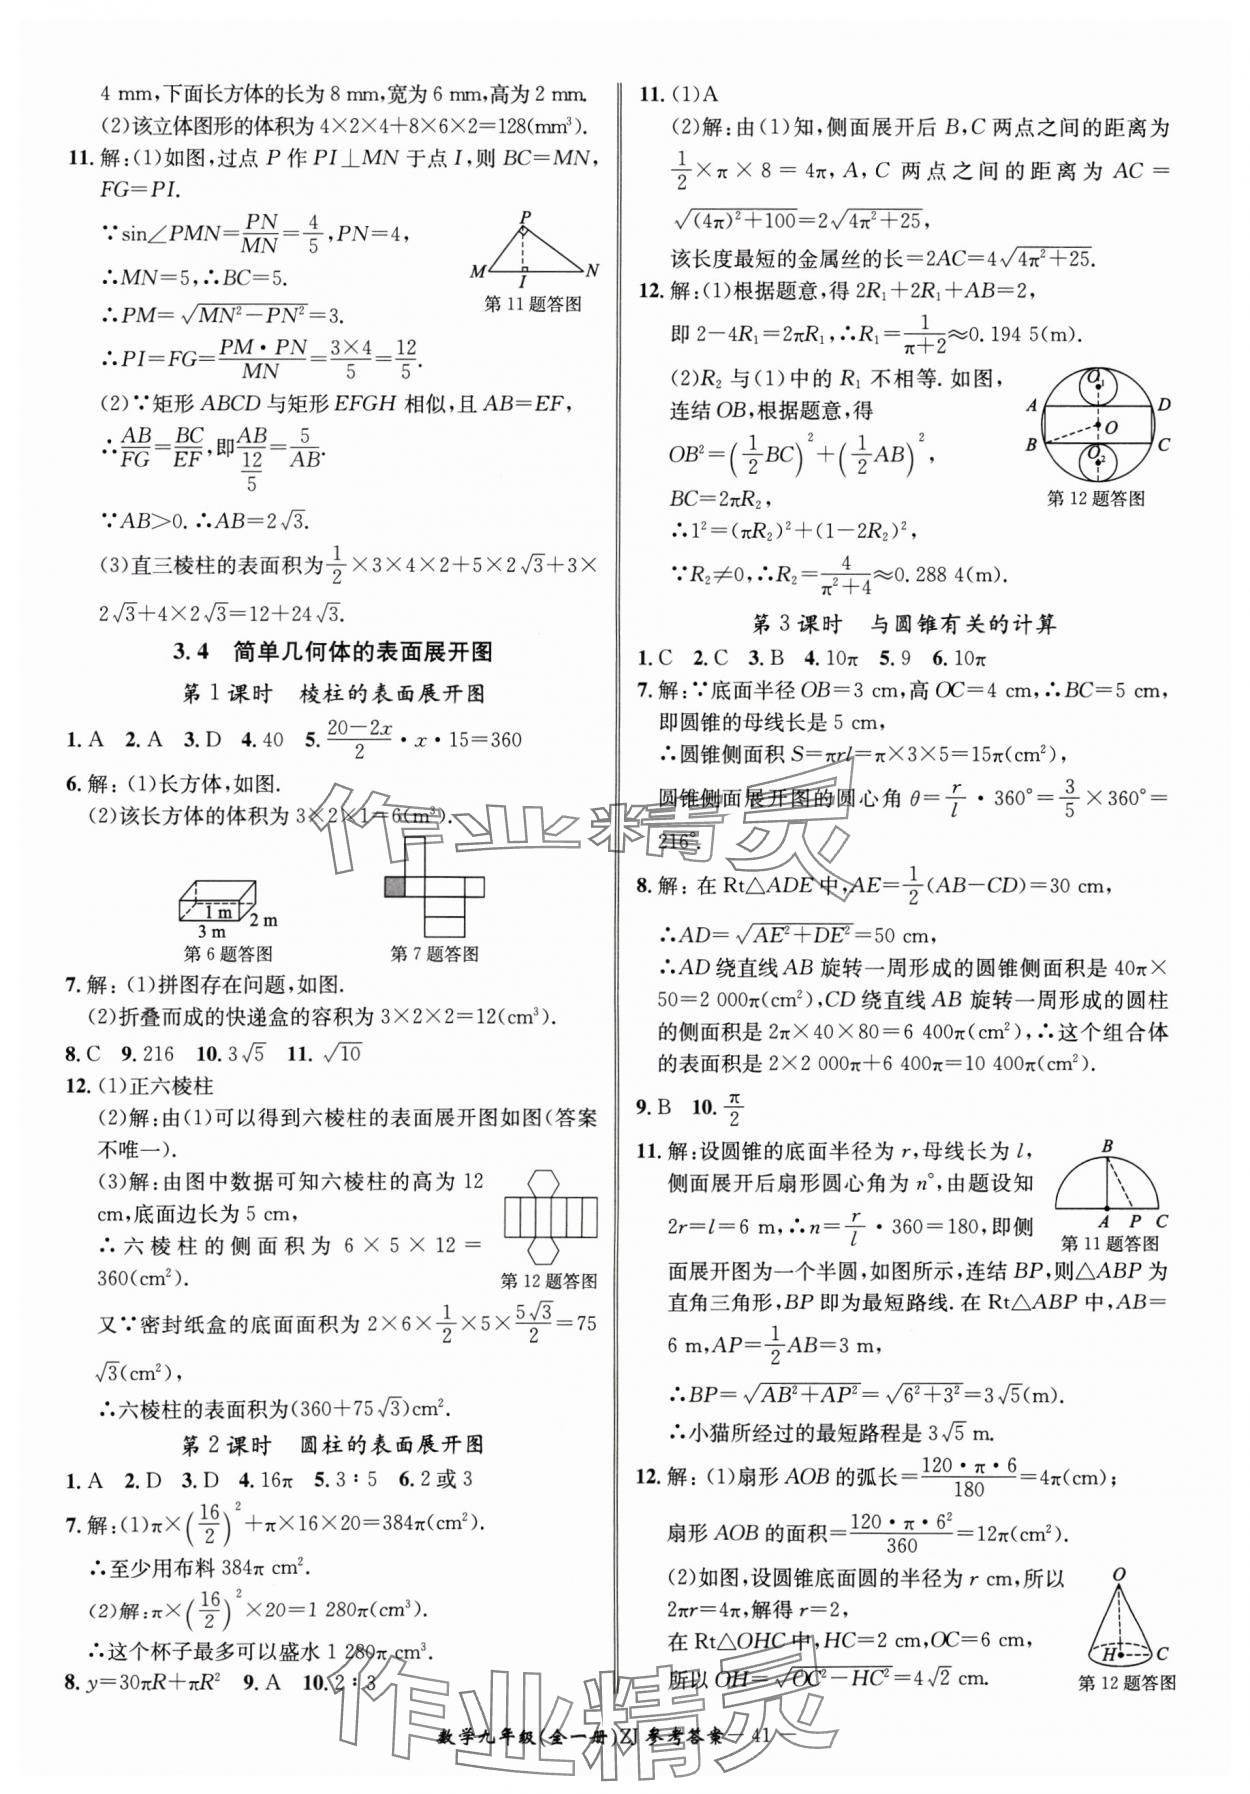 4 mm,下面长方体的长为 8 mm,宽为 6 mm,高为 2 mm.
(2)该立体图形的体积为 4×2×4+8×6×2=128(mm³).
11. 解:(1)如图,过点 P 作 PI⊥MN 于点 I,则 BC=MN,
FG=PI.
∵sin∠PMN=PN/MN=4/5,PN=4,
∴MN=5,∴BC=5.
∴PM=√(MN²-PN²)=3.
∴PI=FG=(PM·PN)/MN=(3×4)/5=12/5.
P
M
I
N
第 11 题答图
(2)∵矩形 ABCD 与矩形 EFGH 相似,且 AB=EF,
∴AB/FG=BC/EF,即AB/(12/5)=5/AB.
∵AB>0.∴AB=2√3.
(3)直三棱柱的表面积为1/2×3×4×2+5×2√3+3×
2√3+4×2√3=12+24√3.
3.4 简单几何体的表面展开图
第 1 课时 棱柱的表面展开图
1. A 2. A 3. D 4. 40 5. (20-2x)/2·x·15=360
6. 解:(1)长方体,如图.
(2)该长方体的体积为 3×2×1=6(m³).
1 m
2 m
3 m
第 6 题答图
第 7 题答图
7. 解:(1)拼图存在问题,如图.
(2)折叠而成的快递盒的容积为 3×2×2=12(cm³).
8. C 9. 216 10. 3√5 11. √10
12. (1)正六棱柱
(2)解:由(1)可以得到六棱柱的表面展开图如图(答案
不唯一).
(3)解:由图中数据可知六棱柱的高为 12
cm,底面边长为 5 cm,
∴六棱柱的侧面积为 6×5×12=
360(cm²).
第 12 题答图
又∵密封纸盒的底面面积为 2×6×1/2×5×5√3/2=75
√3(cm²),
∴六棱柱的表面积为(360+75√3)cm².
第 2 课时 圆柱的表面展开图
1. A 2. D 3. D 4. 16π 5. 3∶5 6. 2 或 3
7. 解:(1)π×(16/2)²+π×16×20=384π(cm²).
∴至少用布料 384π cm².
(2)解:π×(16/2)²×20=1 280π(cm³).
∴这个杯子最多可以盛水 1 280π cm³.
8. y=30πR+πR² 9. A 10. 2∶3
11. (1)A
(2)解:由(1)知,侧面展开后 B,C 两点之间的距离为
1/2×π×8=4π,A,C 两点之间的距离为 AC=
√((4π)²+100)=2√(4π²+25),
该长度最短的金属丝的长=2AC=4√(4π²+25).
12. 解:(1)根据题意,得 2R₁+2R₁+AB=2,
即 2-4R₁=2πR₁,∴R₁=1/(π+2)≈0.194 5(m).
(2)R₂ 与(1)中的 R₁ 不相等.如图,
连结 OB,根据题意,得
OB²=(1/2BC)²+(1/2AB)²,
BC=2πR₂,
∴1²=(πR₂)²+(1-2R₂)²,
∵R₂≠0,∴R₂=4/(π²+4)≈0.288 4(m).
O₁
A
D
O
B
C
O₂
第 12 题答图
第 3 课时 与圆锥有关的计算
1. C 2. C 3. B 4. 10π 5. 9 6. 10π
7. 解:∵底面半径 OB=3 cm,高 OC=4 cm,∴BC=5 cm,
即圆锥的母线长是 5 cm,
∴圆锥侧面积 S=πrl=π×3×5=15π(cm²),
圆锥侧面展开图的圆心角 θ=r/l·360°=3/5×360°=
216°.
8. 解:在 Rt△ADE 中,AE=1/2(AB-CD)=30 cm,
∴AD=√(AE²+DE²)=50 cm,
∴AD 绕直线 AB 旋转一周形成的圆锥侧面积是 40π×
50=2 000π(cm²),CD 绕直线 AB 旋转一周形成的圆柱
的侧面积是 2π×40×80=6 400π(cm²),∴这个组合体
的表面积是 2×2 000π+6 400π=10 400π(cm²).
9. B 10. π/2
11. 解:设圆锥的底面半径为 r,母线长为 l,
侧面展开后扇形圆心角为 n°,由题设知
2r=l=6 m,∴n=r/l·360=180,即侧
面展开图为一个半圆,如图所示,连结 BP,则△ABP 为
直角三角形,BP 即为最短路线.在 Rt△ABP 中,AB=
6 m,AP=1/2AB=3 m,
∴BP=√(AB²+AP²)=√(6²+3²)=3√5(m).
∴小猫所经过的最短路程是 3√5 m.
B
A
P
C
第 11 题答图
12. 解:(1)扇形 AOB 的弧长=(120·π·6)/180=4π(cm);
扇形 AOB 的面积=(120·π·6²)/360=12π(cm²).
(2)如图,设圆锥底面圆的半径为 r cm,所以
2πr=4π,解得 r=2,
在 Rt△OHC 中,HC=2 cm,OC=6 cm,
所以 OH=√(OC²-HC²)=4√2 cm.
O
H
C
第 12 题答图
数学九年级(全一册)ZJ 参考答案— 41 —
作业精灵
作业精灵